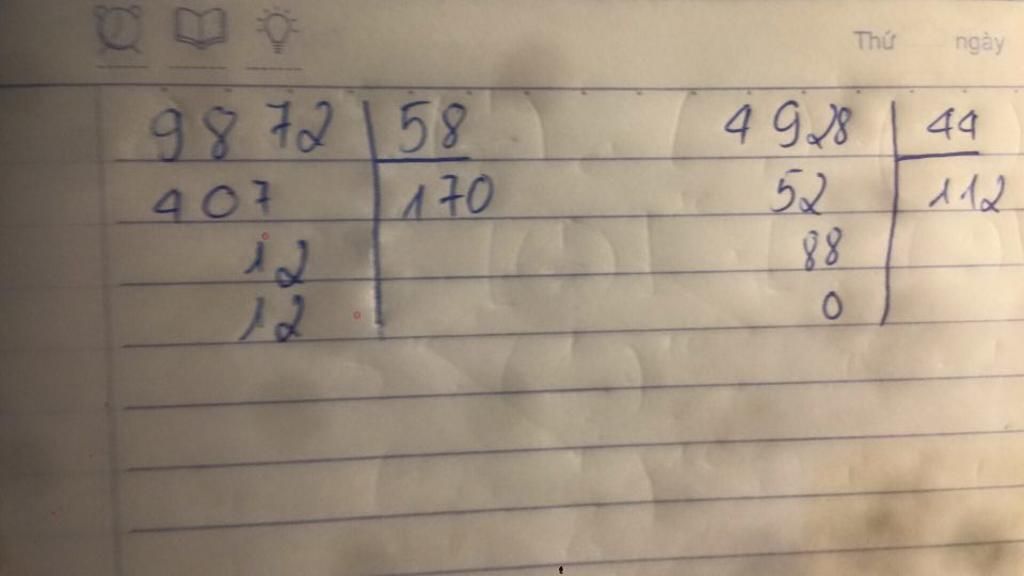 Thứ ngày
9872 58 4928 44
407 170 52 112
12 88
12 0